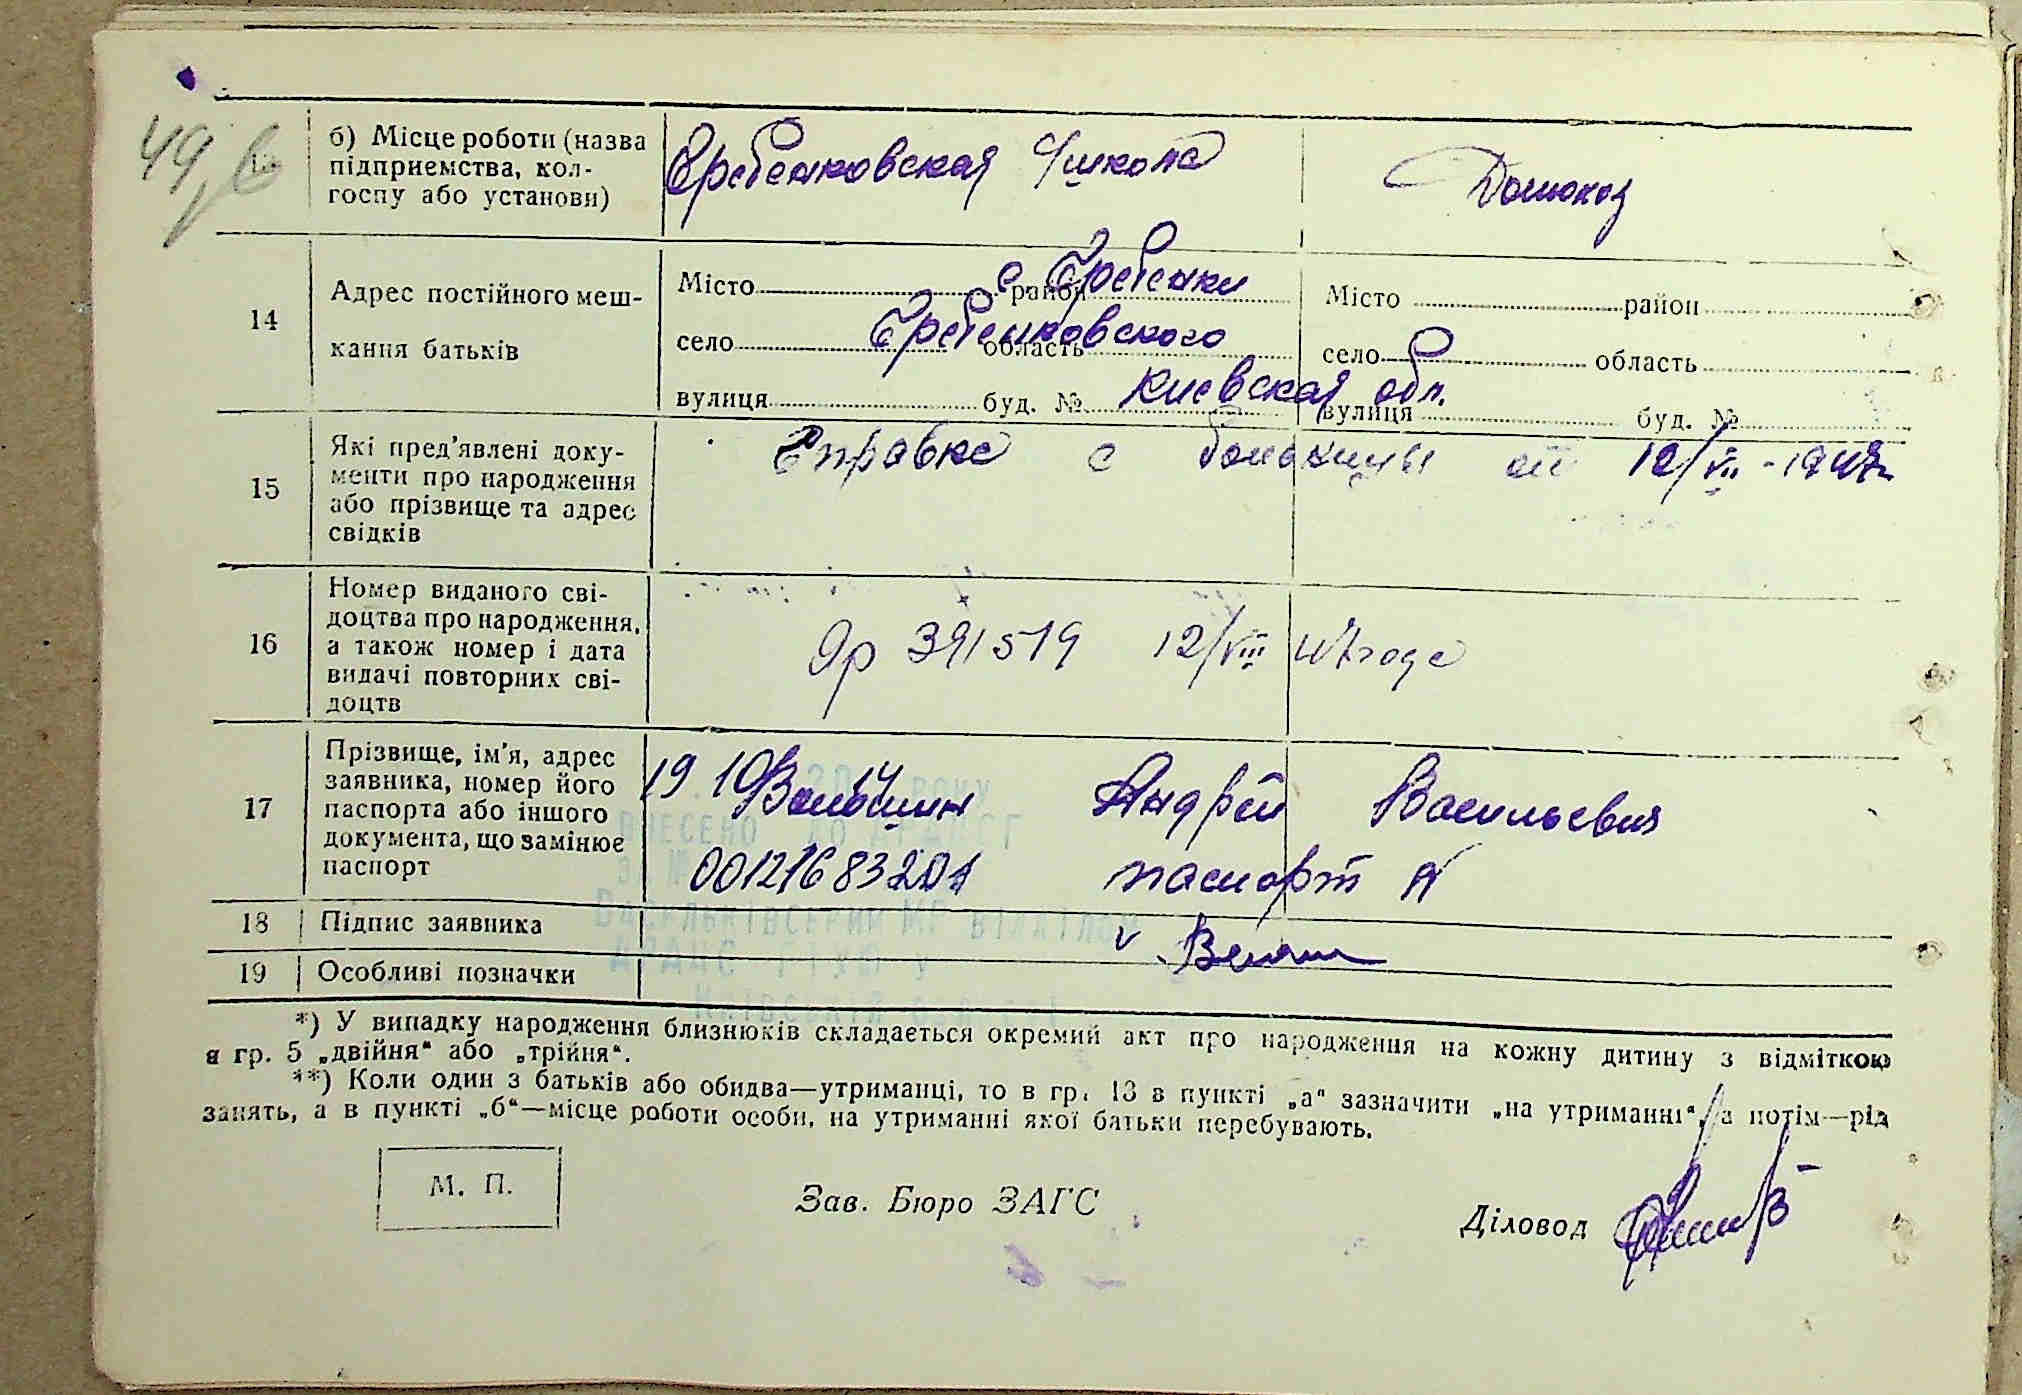 49,
б) Місце роботи (назва
підприємства, кол-
госпу або установи)
Гребенковская школа
Домохоз
14
Адрес постійного меш-
кання батьків
Місто район
с. Гребенки
село область
Гребенковского
вулиця буд. №
Киевская обл.
Місто район
село область
вулиця буд. №
15
Які пред'явлені доку-
менти про народження
або прізвище та адрес
свідків
Справка с больницы от 12/VIII-1947
16
Номер виданого сві-
доцтва про народження,
а також номер і дата
видачі повторних сві-
доцтв
Яр 391519 12/VIII 47 года
17
Прізвище, ім'я, адрес
заявника, номер його
паспорта або іншого
документа, що замінює
паспорт
19 10 14 Андрей Васильевич
00121683201 паспорт №
20 РОКУ
ВНЕСЕНО ДО ДРАЦСГ
ЗА №
ВАСИЛЬКІВСЬКИМ МР ВІДДІЛОМ
ДРАЦС ГТУЮ У
КИЇВСЬКІЙ ОБЛАСТІ
18
Підпис заявника
v
19
Особливі позначки
*) У випадку народження близнюків складається окремий акт про народження на кожну дитину з відміткою
в гр. 5 „двійня“ або „трійня“.
**) Коли один з батьків або обидва—утриманці, то в гр. 13 в пункті „а“ зазначити „на утриманні“, а потім—рід
занять, а в пункті „б“—місце роботи особи, на утриманні якої батьки перебувають.
М. П.
Зав. Бюро ЗАГС
Діловод